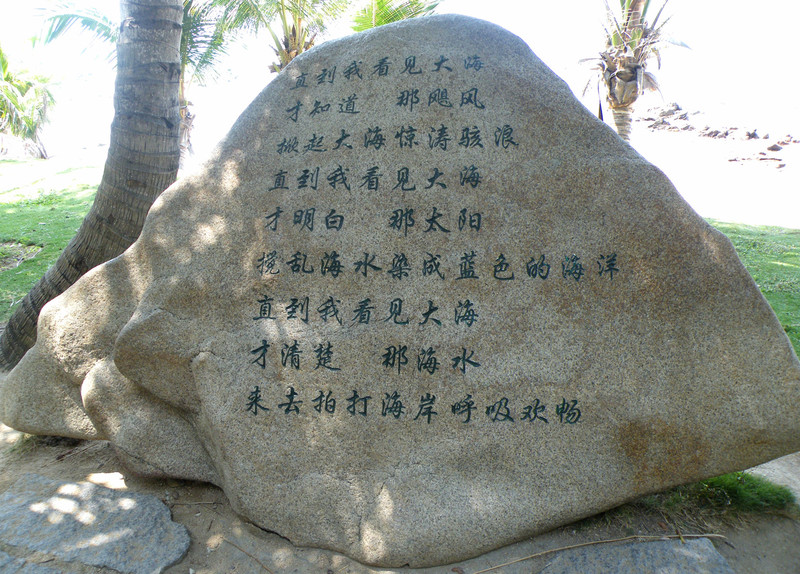 直到我看见大海
才知道 那飓风
掀起大海惊涛骇浪
直到我看见大海
才明白 那太阳
搅乱海水染成蓝色的海洋
直到我看见大海
才清楚 那海水
来去拍打海岸呼吸欢畅